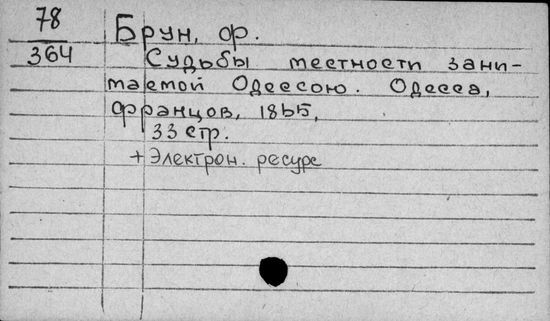 78
364
Брун, ф.
Судьбы местности зани-
маемой Одессою. Одесса,
Францов, 1855,
33 стр.
+ Электрон. ресурс